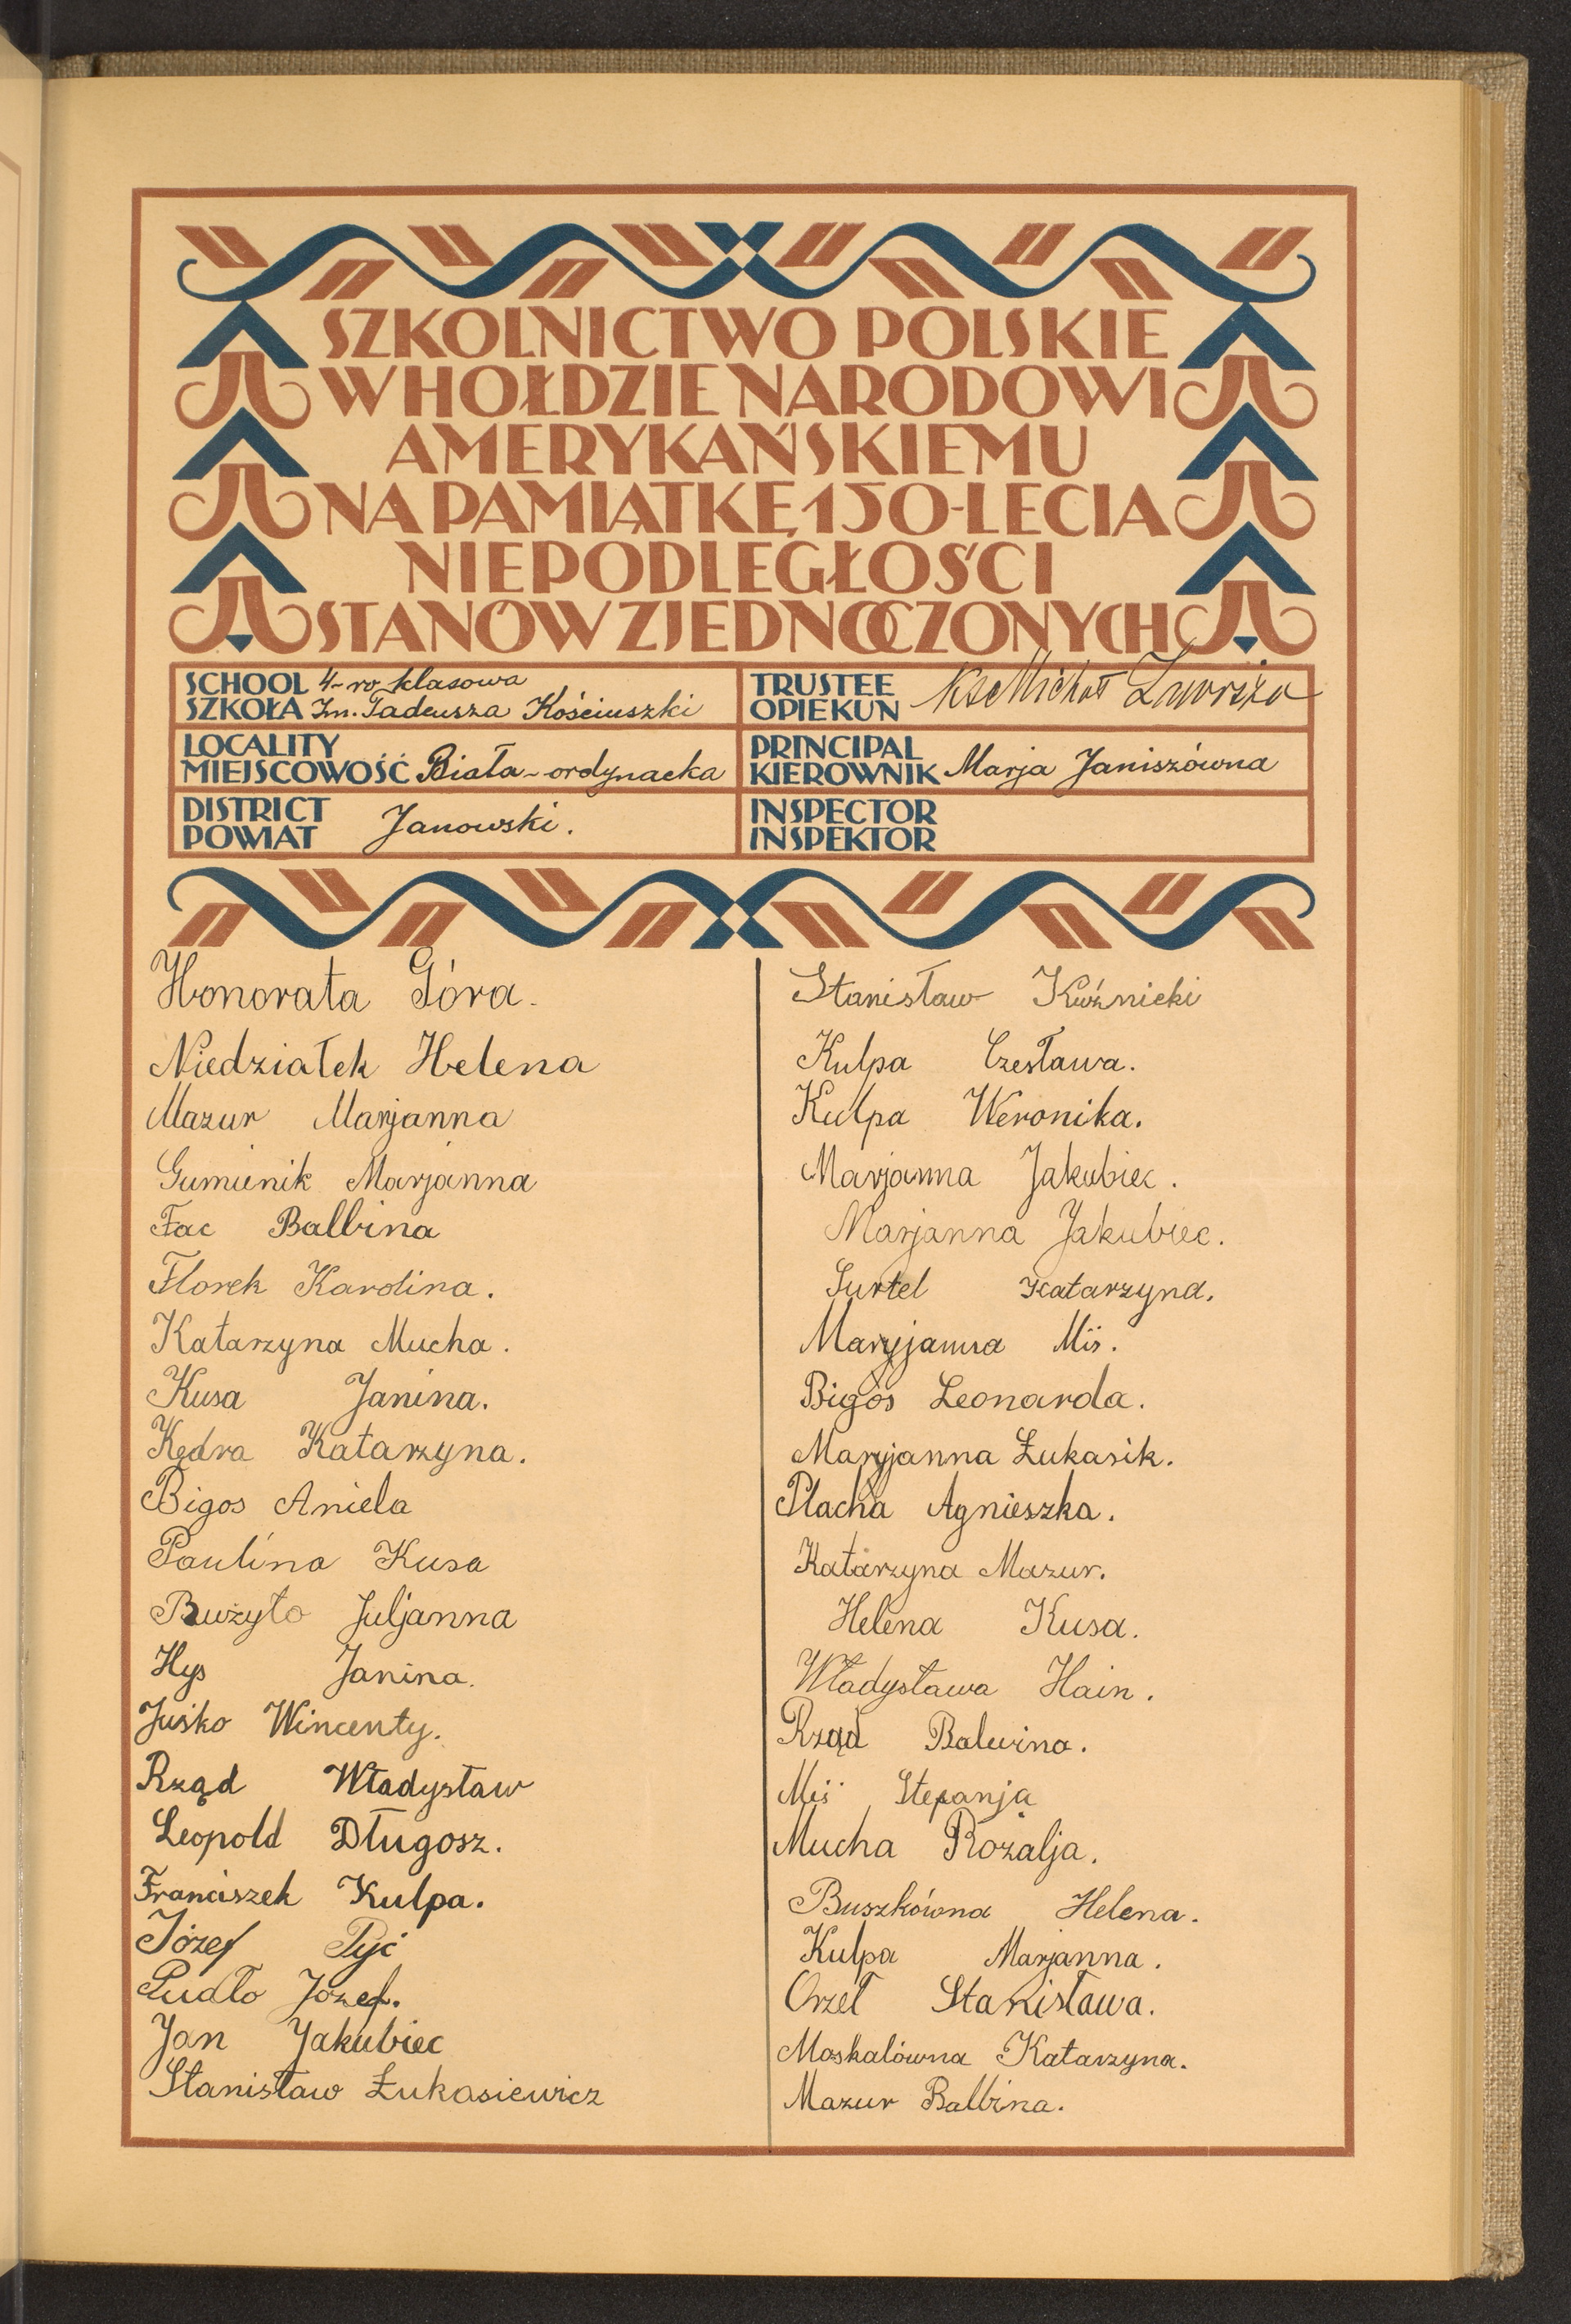 SZKOLNICTWO POLSKIE
W HOŁDZIE NARODOWI
AMERYKAŃSKIEMU
NA PAMIĄTKĘ 150-LECIA
NIEPODLEGŁOŚCI
STANÓW ZJEDNOCZONYCH
SCHOOL 4-ro klasowa
SZKOŁA Im. Tadeusza Kościuszki
TRUSTEE
OPIEKUN Ks Michał
LOCALITY
MIEJSCOWOŚĆ Biała-ordynacka
PRINCIPAL
KIEROWNIK Marja Janiszówna
DISTRICT
POWIAT Janowski.
INSPECTOR
INSPEKTOR
Honorata Góra.
Niedziałek Helena
Mazur Marjanna
Gumienik Marjanna
Fac Balbina
Florek Karolina.
Katarzyna Mucha.
Kusa Janina.
Kędra Katarzyna.
Bigos Aniela
Paulina Kusa
Juljanna
Hys Janina.
Juśko Wincenty.
Rząd Władysław
Leopold Długosz.
Franciszek Kulpa.
Józef Pyć
Pudło Józef.
Jan Jakubiec
Stanisław Łukasiewicz
Stanisław Kuźnicki
Kulpa Czesława.
Kulpa Weronika.
Marjanna Jakubiec.
Marjanna Jakubiec.
Surtel Katarzyna.
Maryjanna Miś.
Bigos Leonarda.
Maryjanna Łukasik.
Płacha Agnieszka.
Katarzyna Mazur.
Helena Kusa.
Władysława Hain.
Rząd Balwina.
Miś Stefanja
Mucha Rozalja.
Buszkówna Helena.
Kulpa Marjanna.
Orzeł Stanisława.
Moskalówna Katarzyna.
Mazur Balbina.